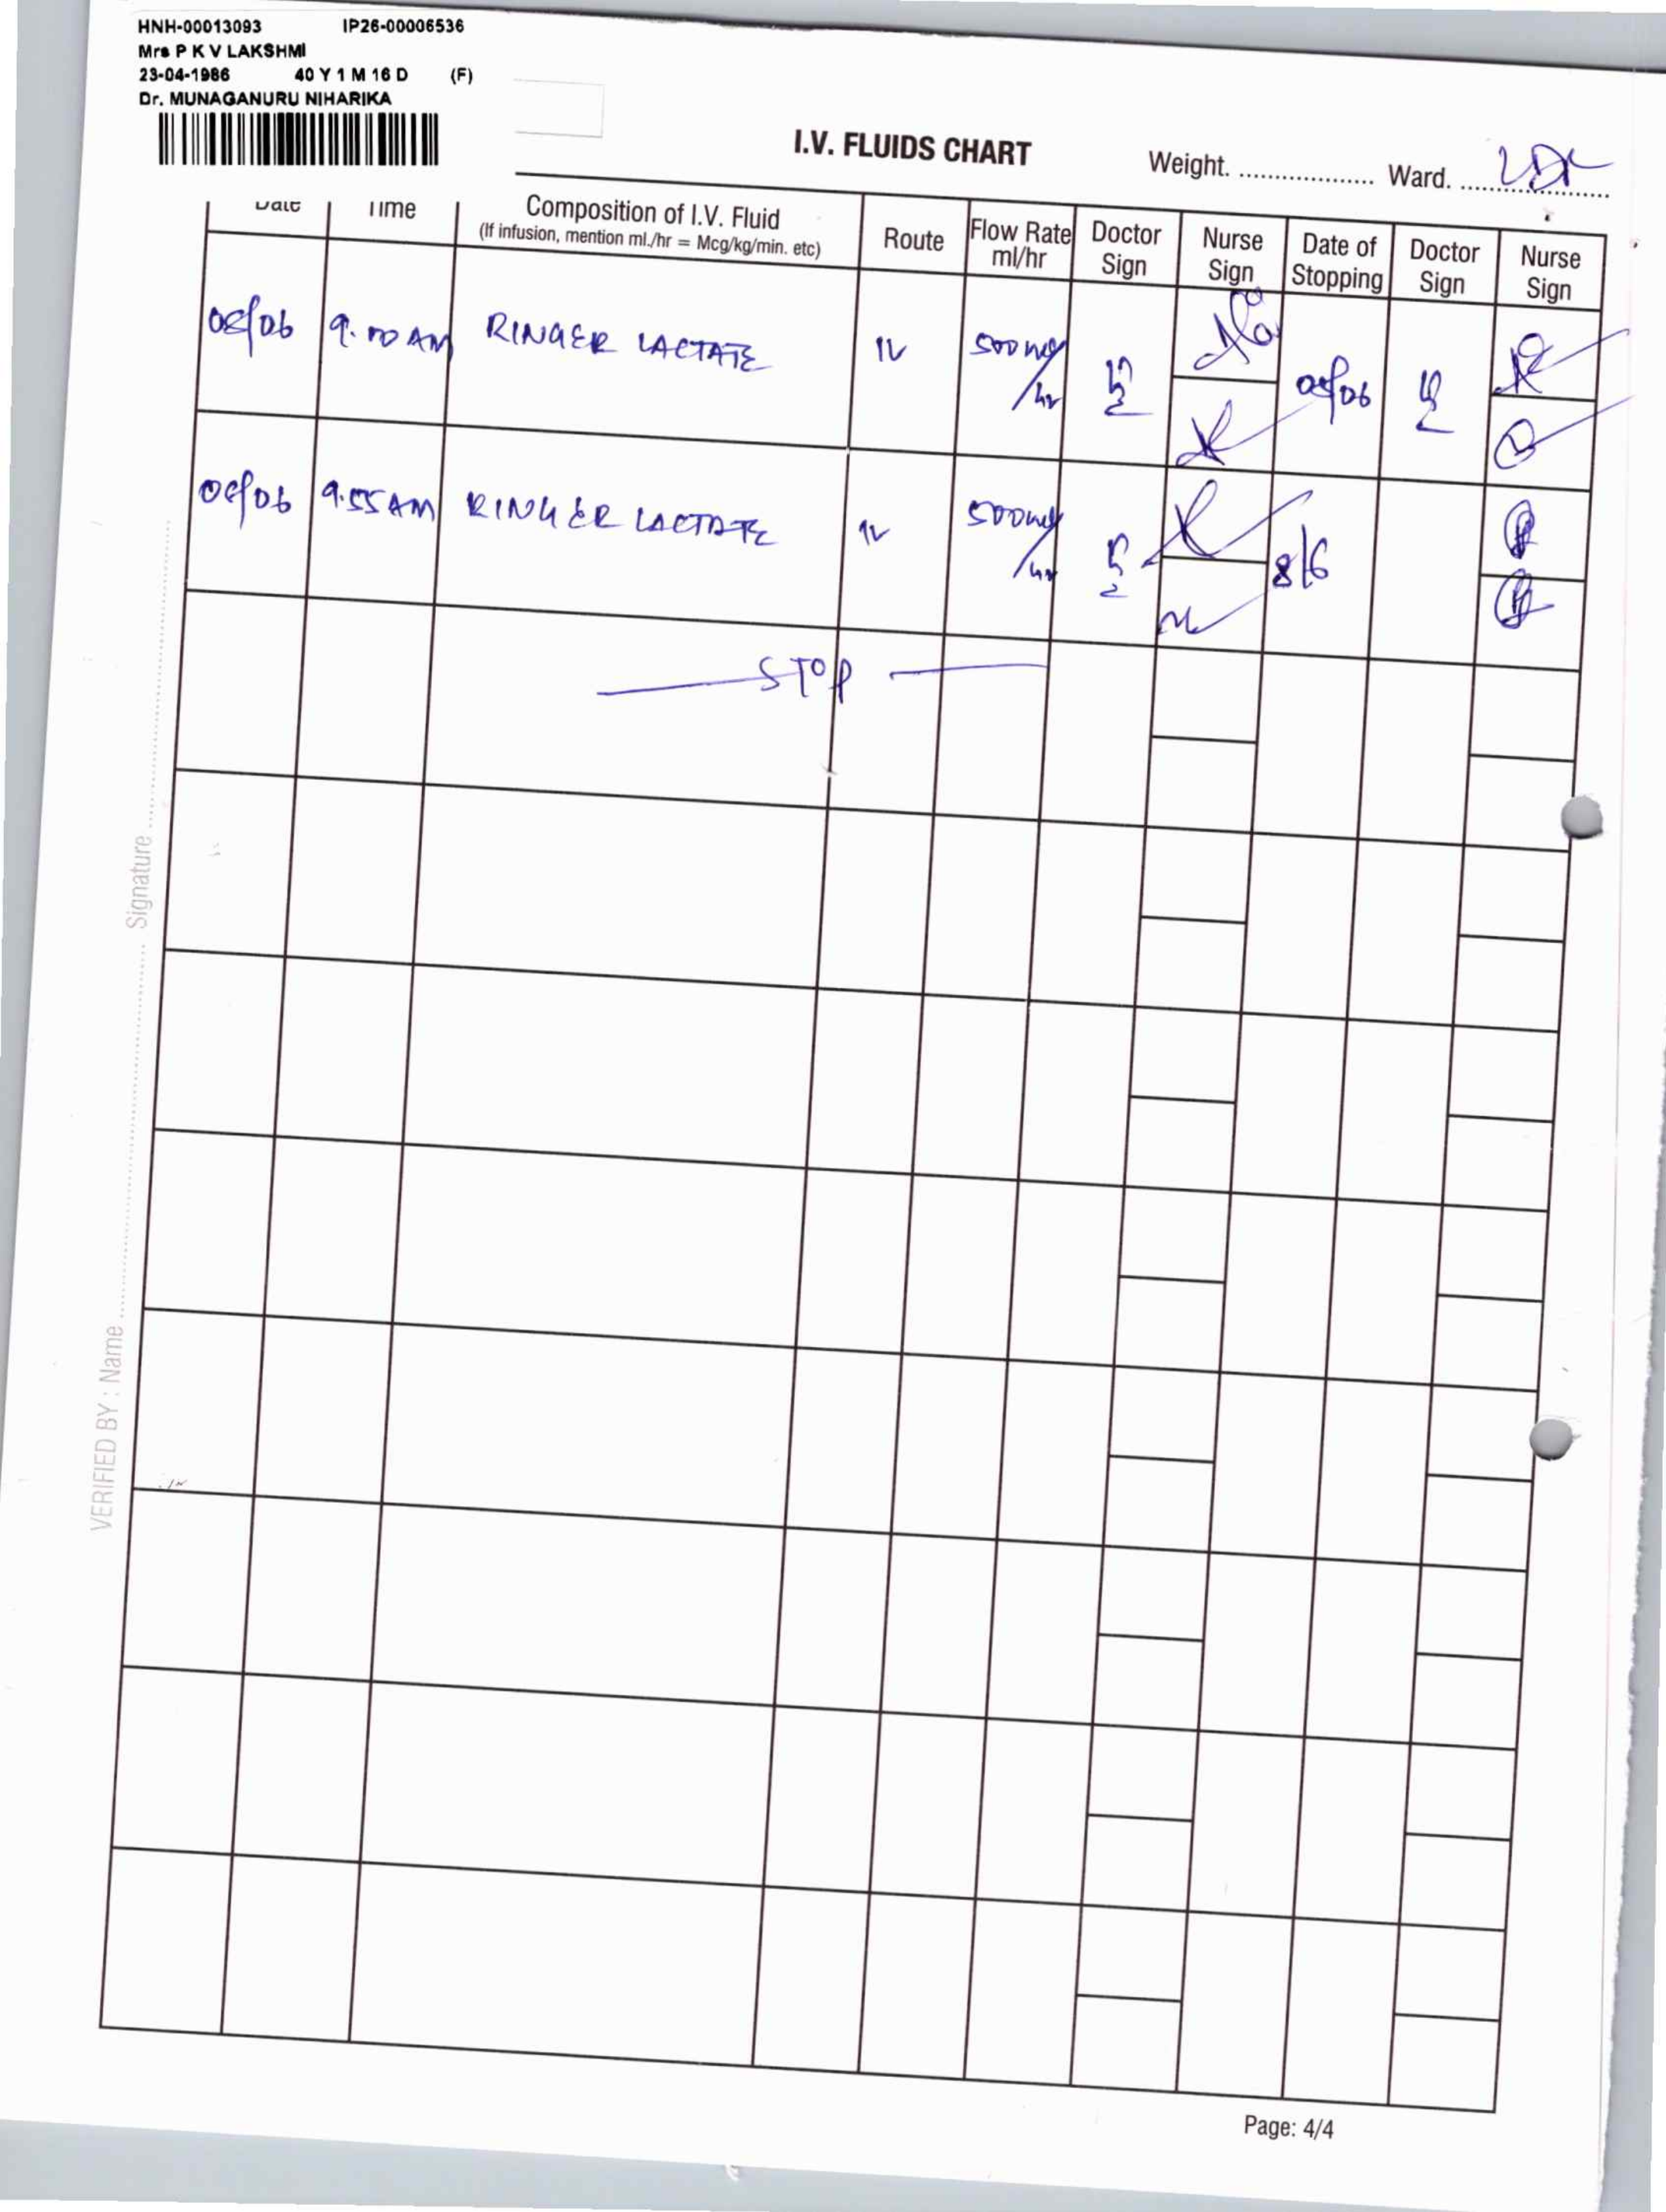 HNH-00013093 IP26-00006536
Mrs P K V LAKSHMI
23-04-1986 40 Y 1 M 16 D (F)
Dr. MUNAGANURU NIHARIKA
I.V. FLUIDS CHART Weight. Ward.
Date Time Composition of I.V. Fluid (If infusion, mention ml./hr = Mcg/kg/min. etc) Route Flow Rate ml/hr Doctor Sign Nurse Sign Date of Stopping Doctor Sign Nurse Sign
08/06 9.00 AM RINGER LACTATE IV 500 ml/hr 08/06
08/06 9.55 AM RINGER LACTATE IV 500 ml/hr 8/6
STOP
VERIFIED BY : Name Signature
Page: 4/4